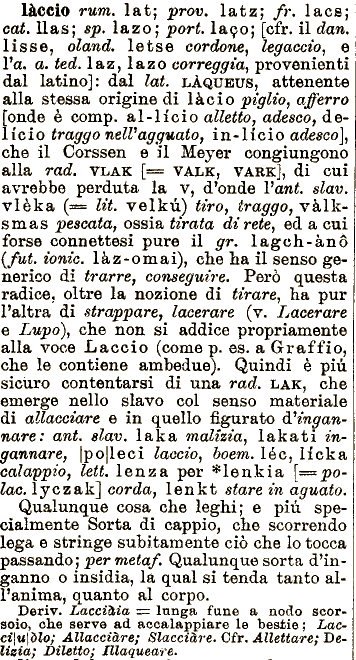 làccio rum. lat; prov. latz; fr. lacs;
cat. llas; sp. lazo; port. laço; [cfr. il dan.
lisse, oland. letse cordone, legaccio, e
l'a. a. ted. laz, lazo correggia, provenienti
dal latino]: dal lat. LÀQUEUS, attenente
alla stessa origine di làcio piglio, afferro
[onde è comp. al-lício alletto, adesco, de-
lício traggo nell'agguato, in-lício adesco],
che il Corssen e il Meyer congiungono
alla rad. VLAK [= VALK, VARK], di cui
avrebbe perduta la v, d'onde l'ant. slav.
vlèka (= lit. velkú) tiro, traggo, vàlk-
smas pescata, ossia tirata di rete, ed a cui
forse connettesi pure il gr. lagch-ànô
(fut. ionic. làz-omai), che ha il senso ge-
nerico di trarre, conseguire. Però questa
radice, oltre la nozione di tirare, ha pur
l'altra di strappare, lacerare (v. Lacerare
e Lupo), che non si addice propriamente
alla voce Laccio (come p. es. a Graffio,
che le contiene ambedue). Quindi è più
sicuro contentarsi di una rad. LAK, che
emerge nello slavo col senso materiale
di allacciare e in quello figurato d'ingan-
nare: ant. slav. laka malizia, lakati in-
gannare, |po|leci laccio, boem. léc, lícka
calappio, lett. lenza per *lenkia [= po-
lac. lyczak] corda, lenkt stare in aguato.
Qualunque cosa che leghi; e più spe-
cialmente Sorta di cappio, che scorrendo
lega e stringe subitamente ciò che lo tocca
passando; per metaf. Qualunque sorta d'in-
ganno o insidia, la qual si tenda tanto al-
l'anima, quanto al corpo.
Deriv. Lacciàia = lunga fune a nodo scor-
soio, che serve ad accalappiare le bestie; Lac-
ci|u|òlo; Allacciàre; Slacciàre. Cfr. Allettare; De-
lizia; Diletto; Illaqueare.